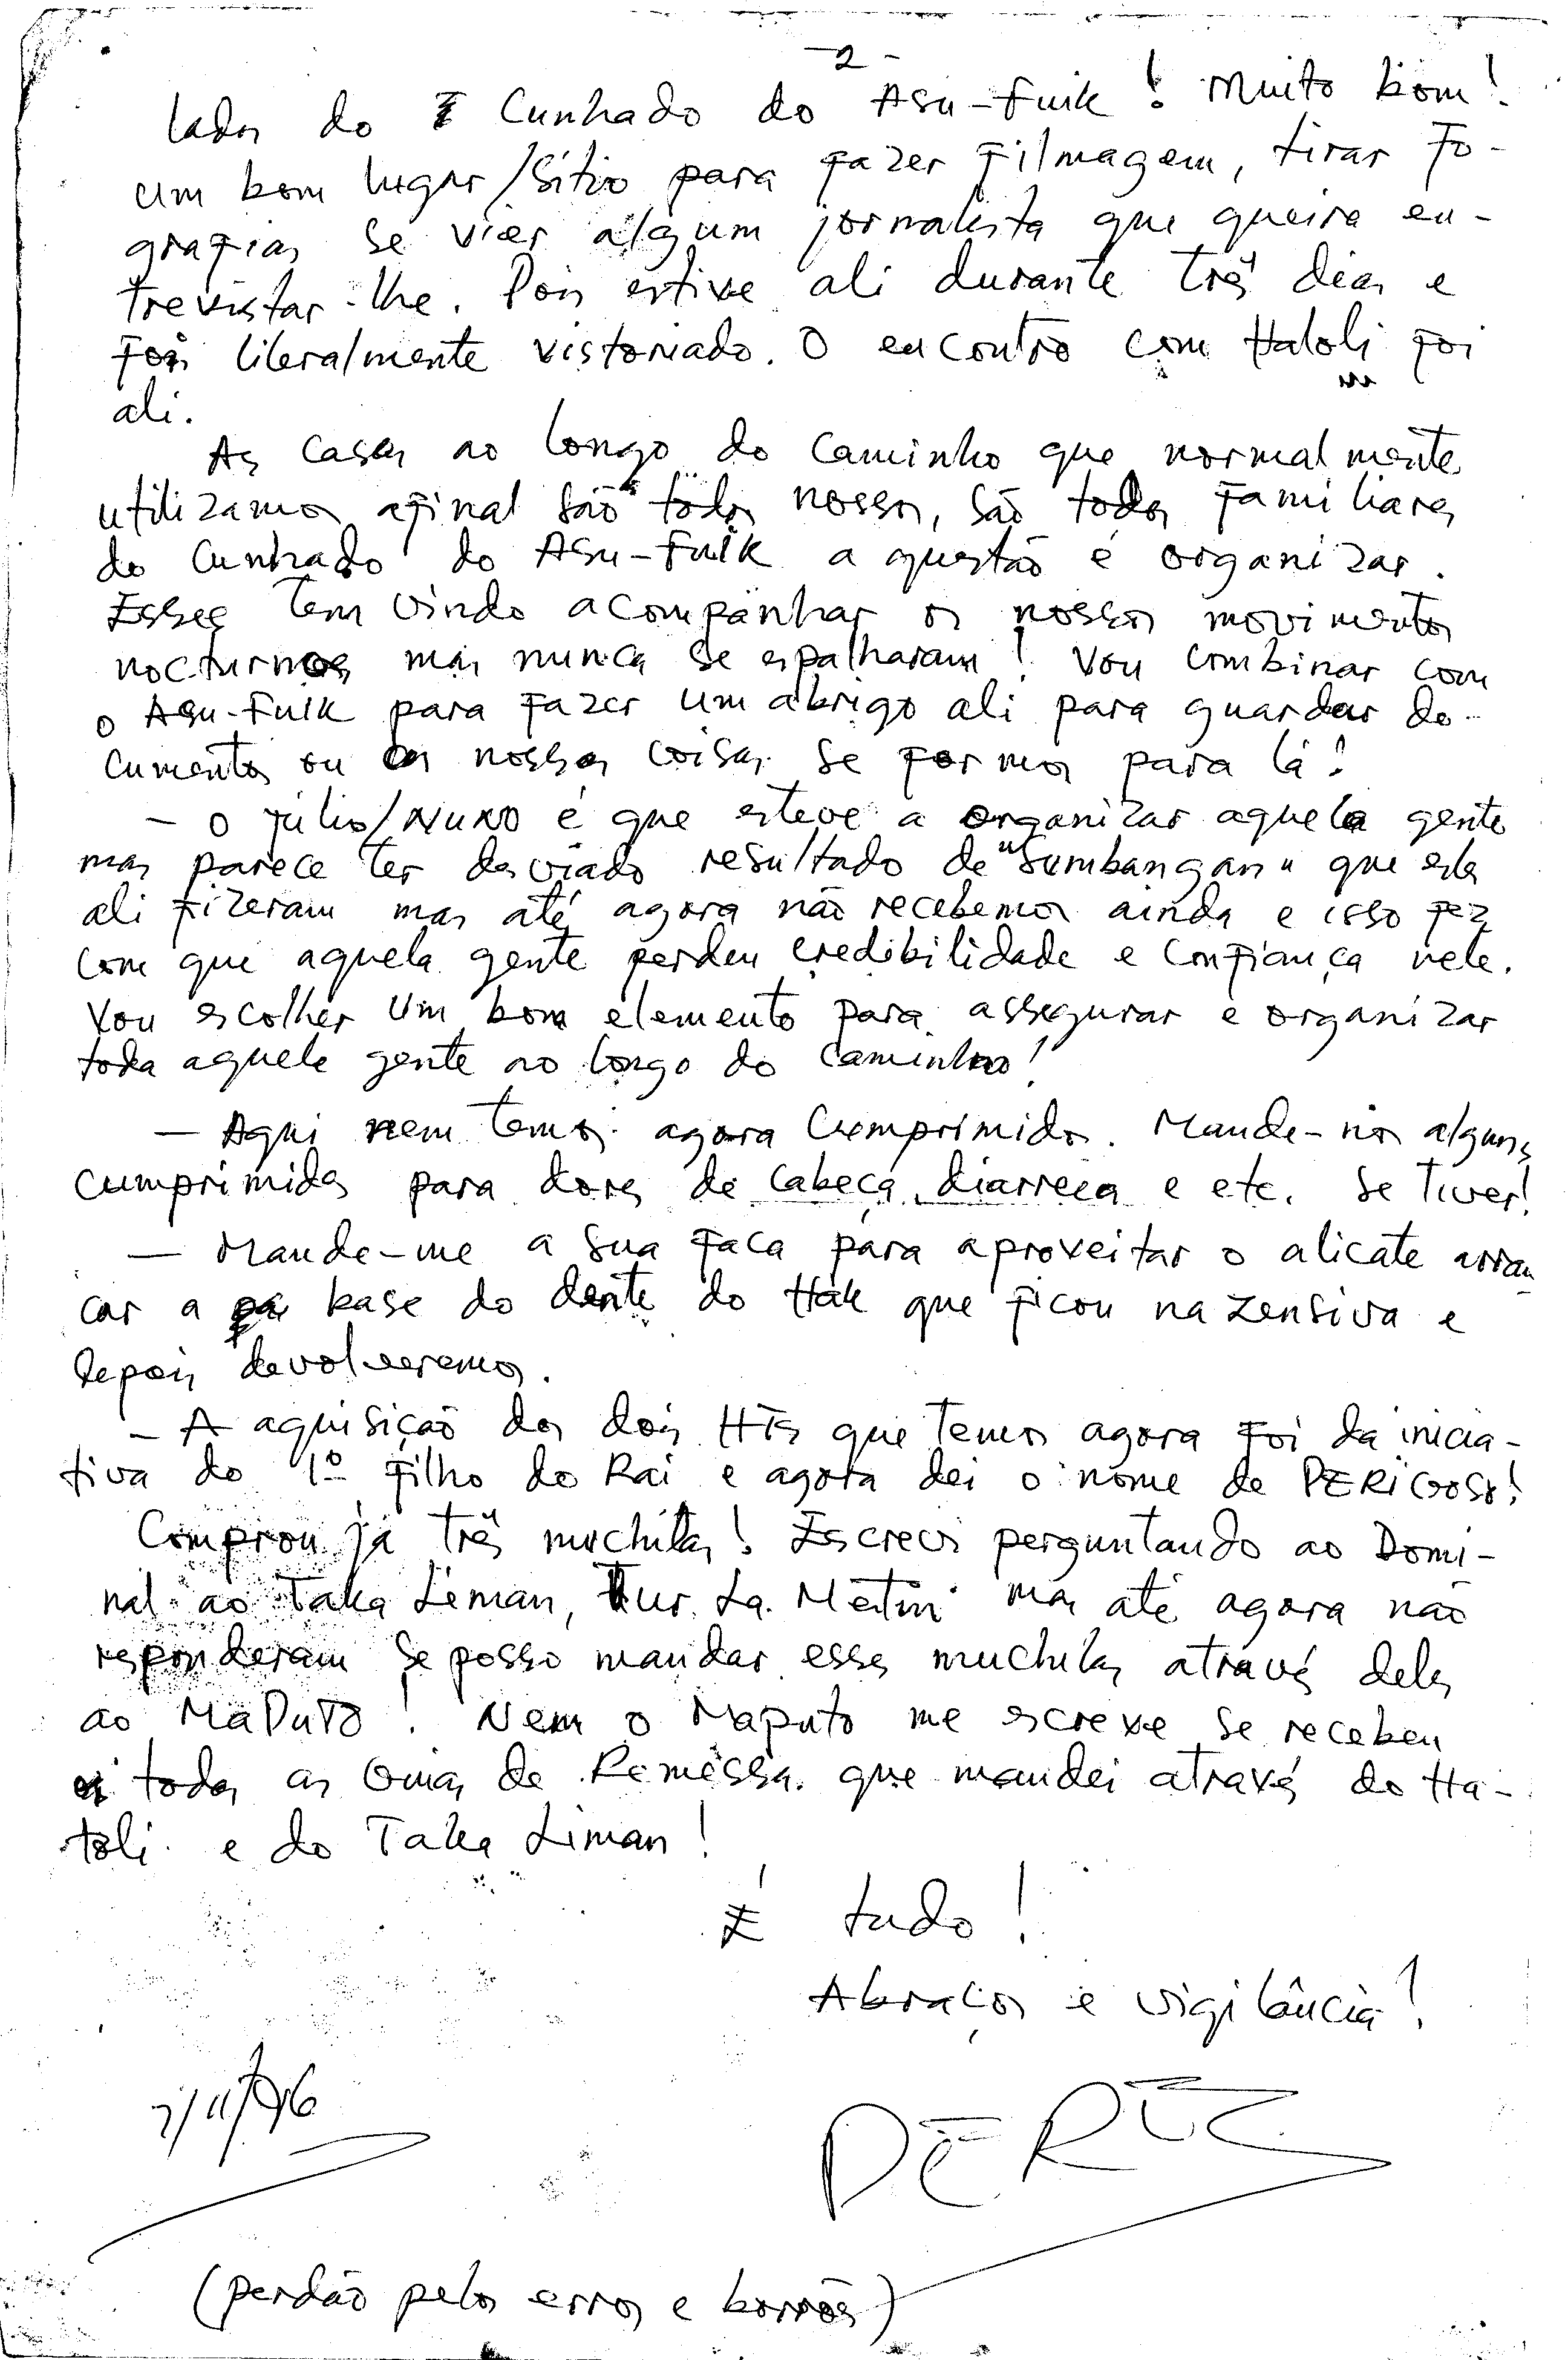 - 2 -
lados do Cunhado do Asu-Fuik! Muito bom!
um bom lugar/Sítio para fazer filmagem, tirar fo-
grafias se vier algum jornalista que queira en-
trevistar-lhe. Pois estive ali durante três dias e
foi literalmente vistoriado. O encontro com Hatoli foi
ali.
As casas ao longo do caminho que normalmente
utilizamos afinal são todos nossos, são todos familiares
do Cunhado do Asu-Fuik a questão é organizar.
Esses tem vindo acompanhar os nossos movimentos
nocturnos mas nunca se espalharam! Vou combinar com
o Asu-Fuik para fazer um abrigo ali para guardar do-
cumentos ou as nossas coisas se formos para lá!
- O Júlio/NUNO é que esteve a organizar aquela gente
mas parece ter desviado resultado de "Sumbangan" que eles
ali fizeram mas até agora não recebemos ainda e isso fez
com que aquela gente perdeu credibilidade e confiança nele.
Vou escolher um bom elemento para assegurar e organizar
toda aquela gente ao longo do caminho!
- Aqui nem temos agora Cumprimidos. Mande-nos alguns
cumprimidos para dores de cabeça, diarreia e etc. Se Tiver!
- Mande-me a sua faca para aproveitar o alicate arran
car a base do dente do Hak que ficou na zensiva e
depois devolveremos.
- A aquisição dos dois HTs que temos agora foi da inicia-
tiva do 1º filho do Rai e agora dei o nome de PERIGOSO!
Comprou já três muchilas! Escrevi perguntando ao Domi-
nal ao Taka Liman, Tur. La. Metin mas até agora não
responderam se posso mandar esses muchilas através deles
ao MaPUTO! Nem o Maputo me escreve se recebeu
todas as Guias de Remessa que mandei através do Ha-
toli e do Taka Liman!
É tudo!
Abraços e vigilância!
2/11/96
(perdão pelos erros e borrões)